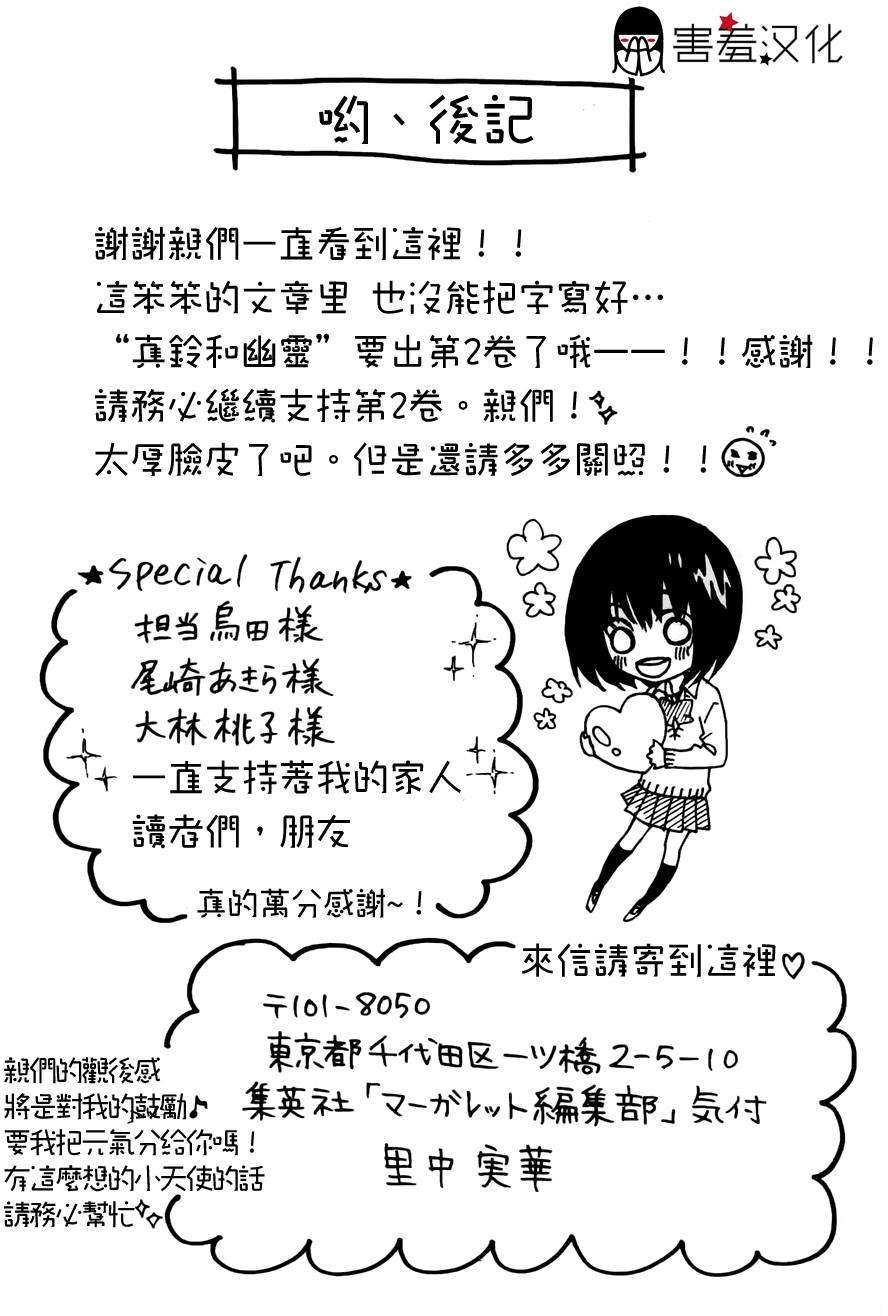 害羞汉化
哟、後記
謝謝親們一直看到這裡！！
這笨笨的文章里 也沒能把字寫好…
“真鈴和幽靈”要出第2卷了哦——！！感謝！！
請務必繼續支持第2卷。親們！
太厚臉皮了吧。但是還請多多關照！！
★Special Thanks★
担当鳥田様
尾崎あきら様
大林桃子様
一直支持著我的家人
讀者們，朋友
真的萬分感謝~！
來信請寄到這裡♡
〒101-8050
東京都千代田区一ツ橋2-5-10
集英社「マーガレット編集部」気付
里中実華
親們的觀後感
將是對我的鼓勵♪
要我把元氣分給你嗎！
有這麼想的小天使的話
請務必幫忙